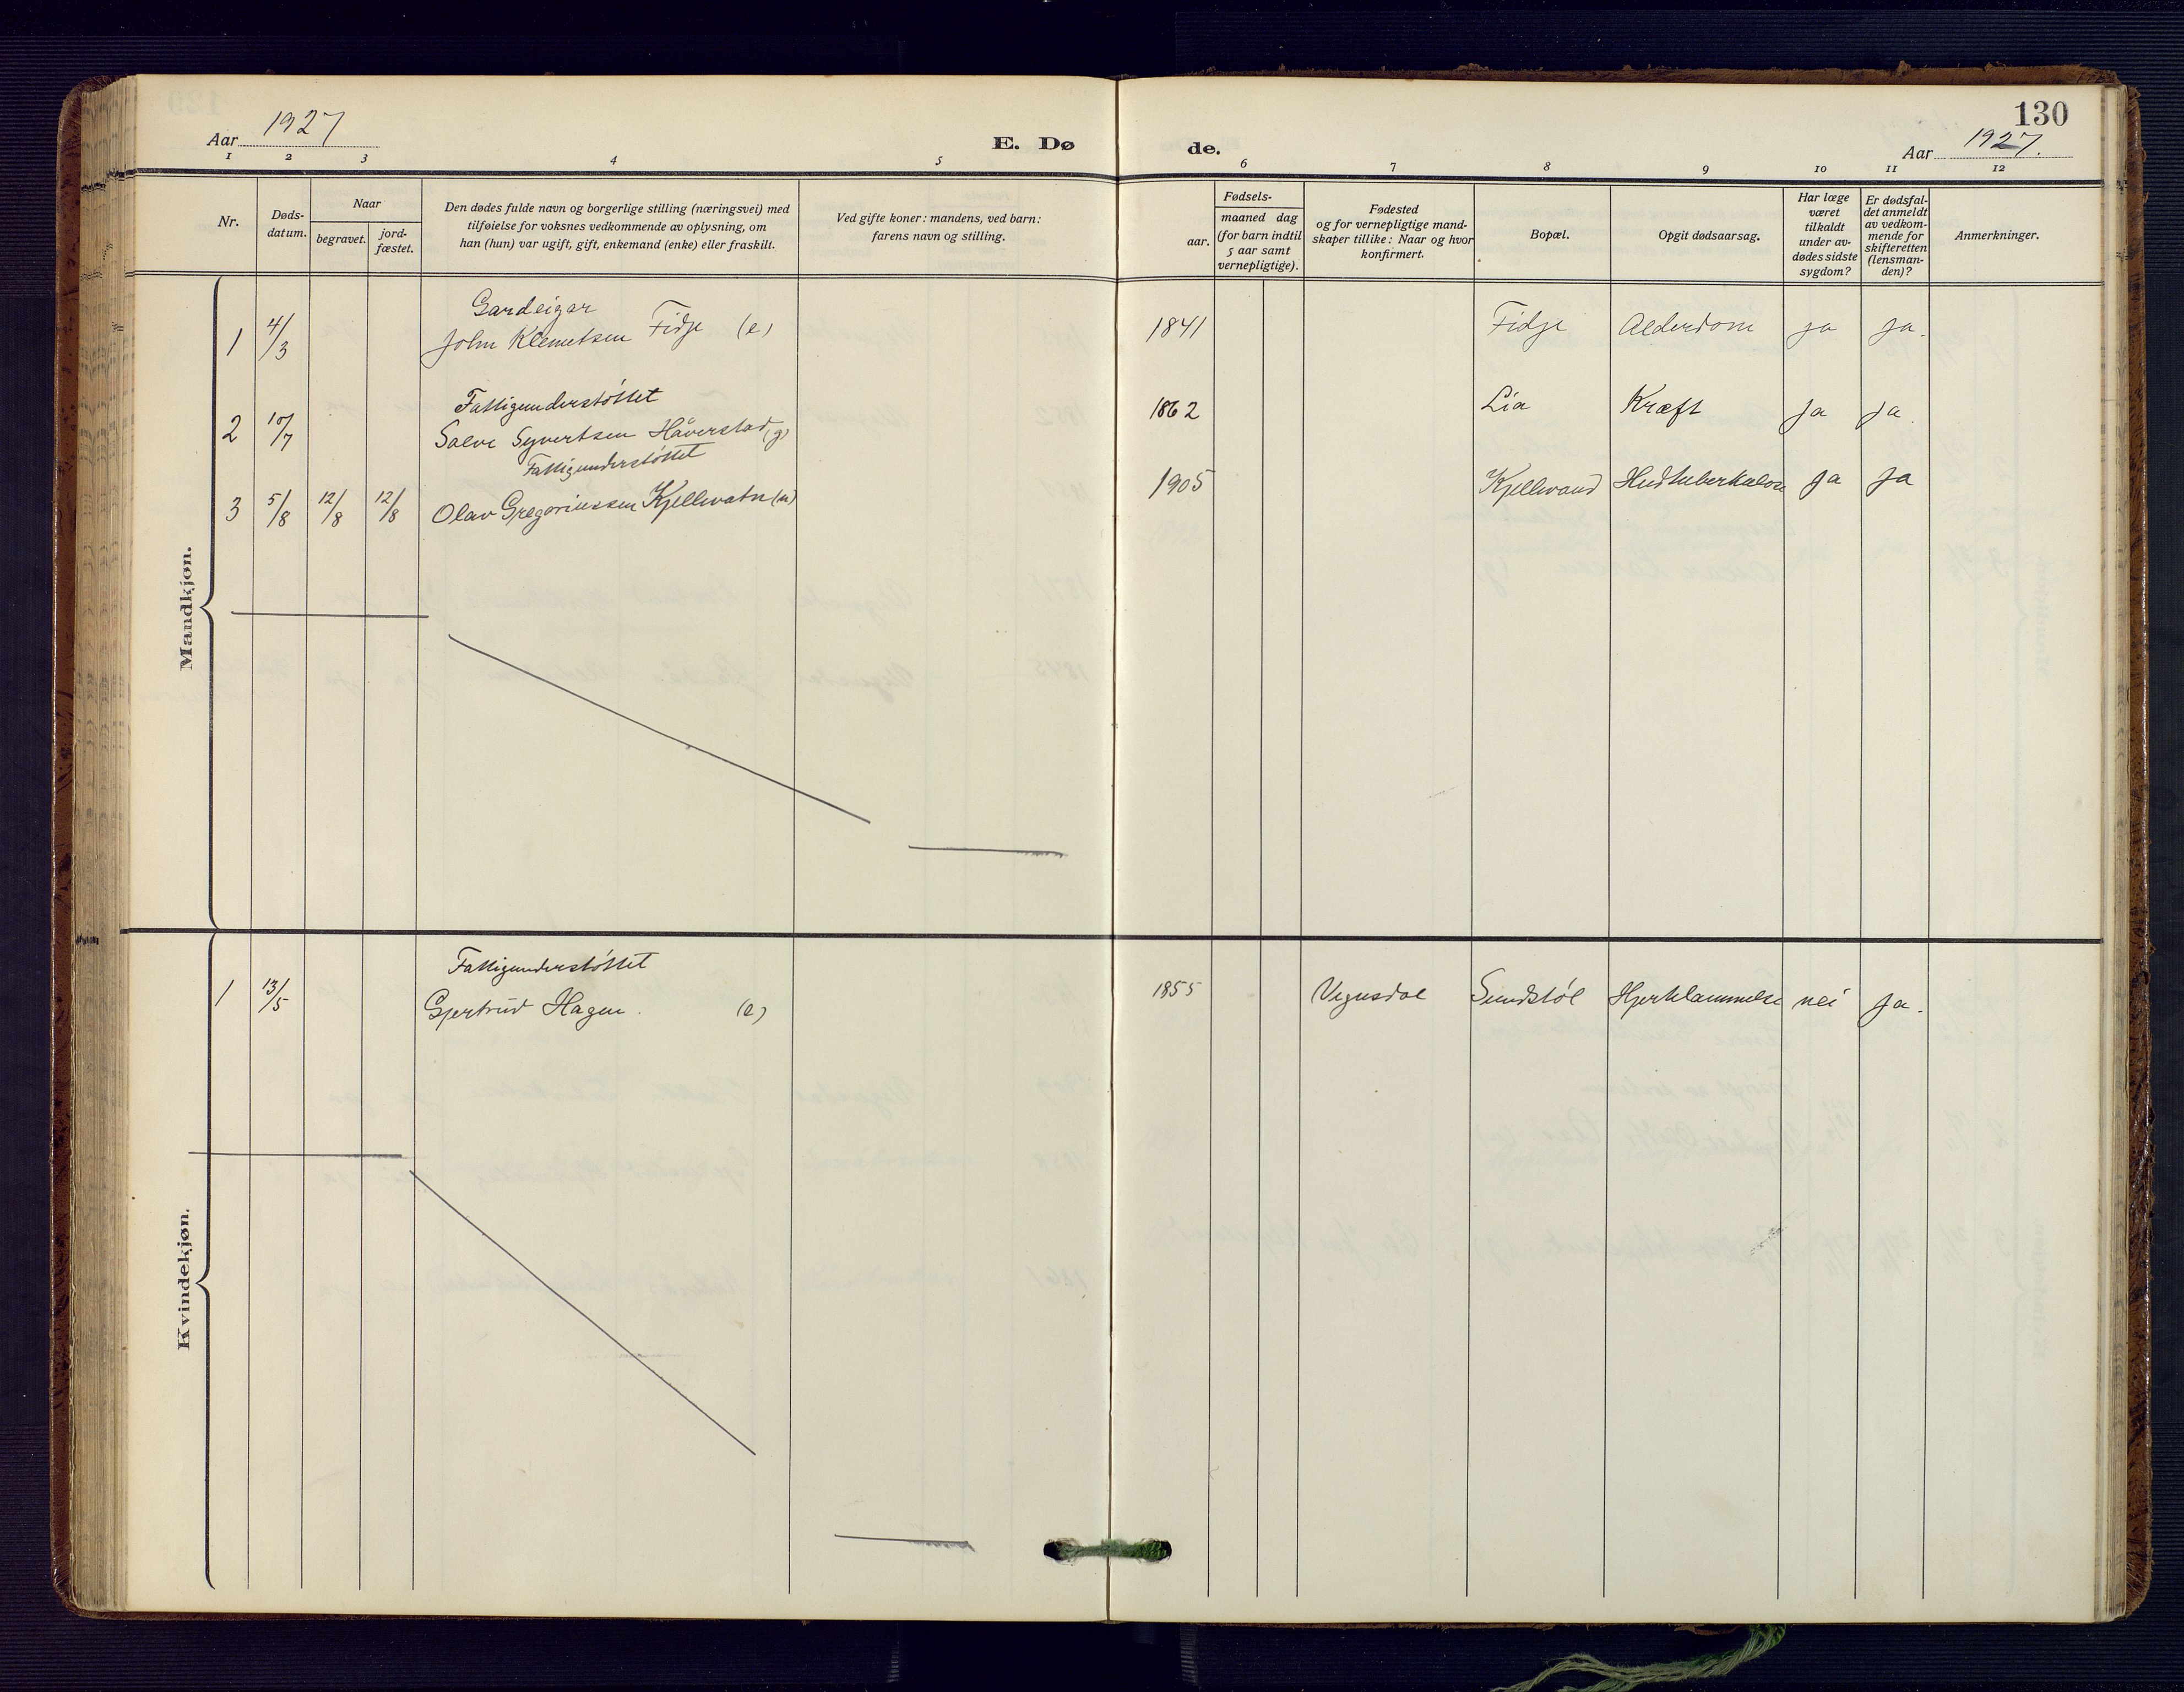 130
Aar 1927
E. Dø de.
Aar 1927.
1 2 3 4 5 6 7 8 9 10 11 12
Nr.
Døds-
datum.
Naar
begravet.
jord-
fæstet.
Den dødes fulde navn og borgerlige stilling (næringsvei) med
tilføielse for voksnes vedkommende av oplysning, om
han (hun) var ugift, gift, enkemand (enke) eller fraskilt.
Ved gifte koner: mandens, ved barn:
farens navn og stilling.
Fødsels-
aar.
maaned dag
(for barn indtil
5 aar samt
vernepligtige).
Fødested
og for vernepligtige mand-
skaper tillike: Naar og hvor
konfirmert.
Bopæl.
Opgit dødsaarsag.
Har læge
været
tilkaldt
under av-
dødes sidste
sygdom?
Er dødsfal-
det anmeldt
av vedkom-
mende for
skifteretten
(lensman-
den)?
Anmerkninger.
Mandkjøn.
Gardeigar
1 4/3 John Klemetsen Fidje (e) 1841 Fidje Alderdom ja ja.
Fattigunderstöttet
2 10/7 Salve Syvertsen Håverstad (g) 1862 Lia Kræft ja ja
Fattigunderstöttet
3 5/8 12/8 12/8 Olav Gregoriussen Kjellevatn (u) 1905 Kjellevand Hudtuberkulose ja ja
Kvindekjøn.
Fattigunderstöttet
1 13/5 Gjertrud Hagen. (e) 1855 Vegusdal Sundstöl Hjertelammelse nei ja.